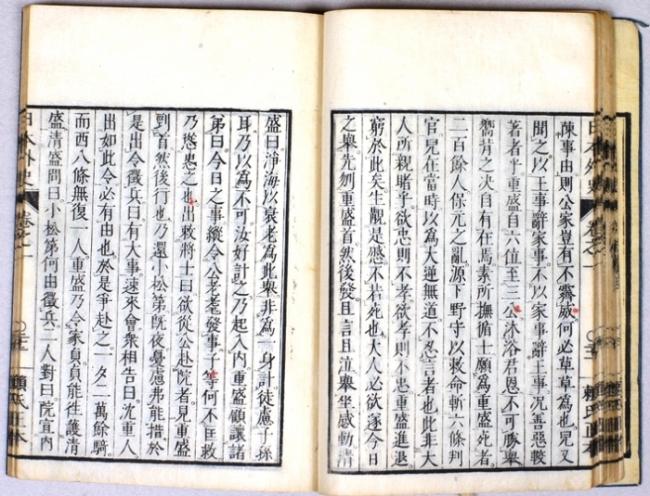 陳事由則公家豈有不霽威何必草草為也兒又
聞之以王事辭家事不以家事辭王事況善惡較
著者乎重盛自六位至三公沐浴君恩不可勝舉
嚮背之決自有在焉素所撫循士願為重盛死者
二百餘人保元之亂源下野守以敕命斬六條判
官兒在當時以為大逆無道不忍言者也此非大
人所親睹乎欲忠則不孝欲孝則不忠重盛進退
窮於此矣生觀是慼不若死也大人必欲遂今日
之舉先刎重盛首然後發且言且泣舉坐感動清
盛曰淨海以衰老為此舉非為一身計徒慮子孫
耳乃以為不可汝好計之乃起入內重盛顧讓諸
弟曰今日之事縱令公老耄發事子等何不匡救
乃慫慂之也出敕將士曰欲從公赴院者見重盛
刎首然後行也乃還小松第既夜憂慮弗能措於
是出令徵兵曰有大事速來會眾相告曰沈重人
出如此令必有由也於是爭赴之一夕二萬餘騎
而西八條無復一人重盛乃令家貞貞能往護清
盛清盛問曰小松第何由徵兵二人對曰院宣內
日本外史 卷之一 賴氏正本